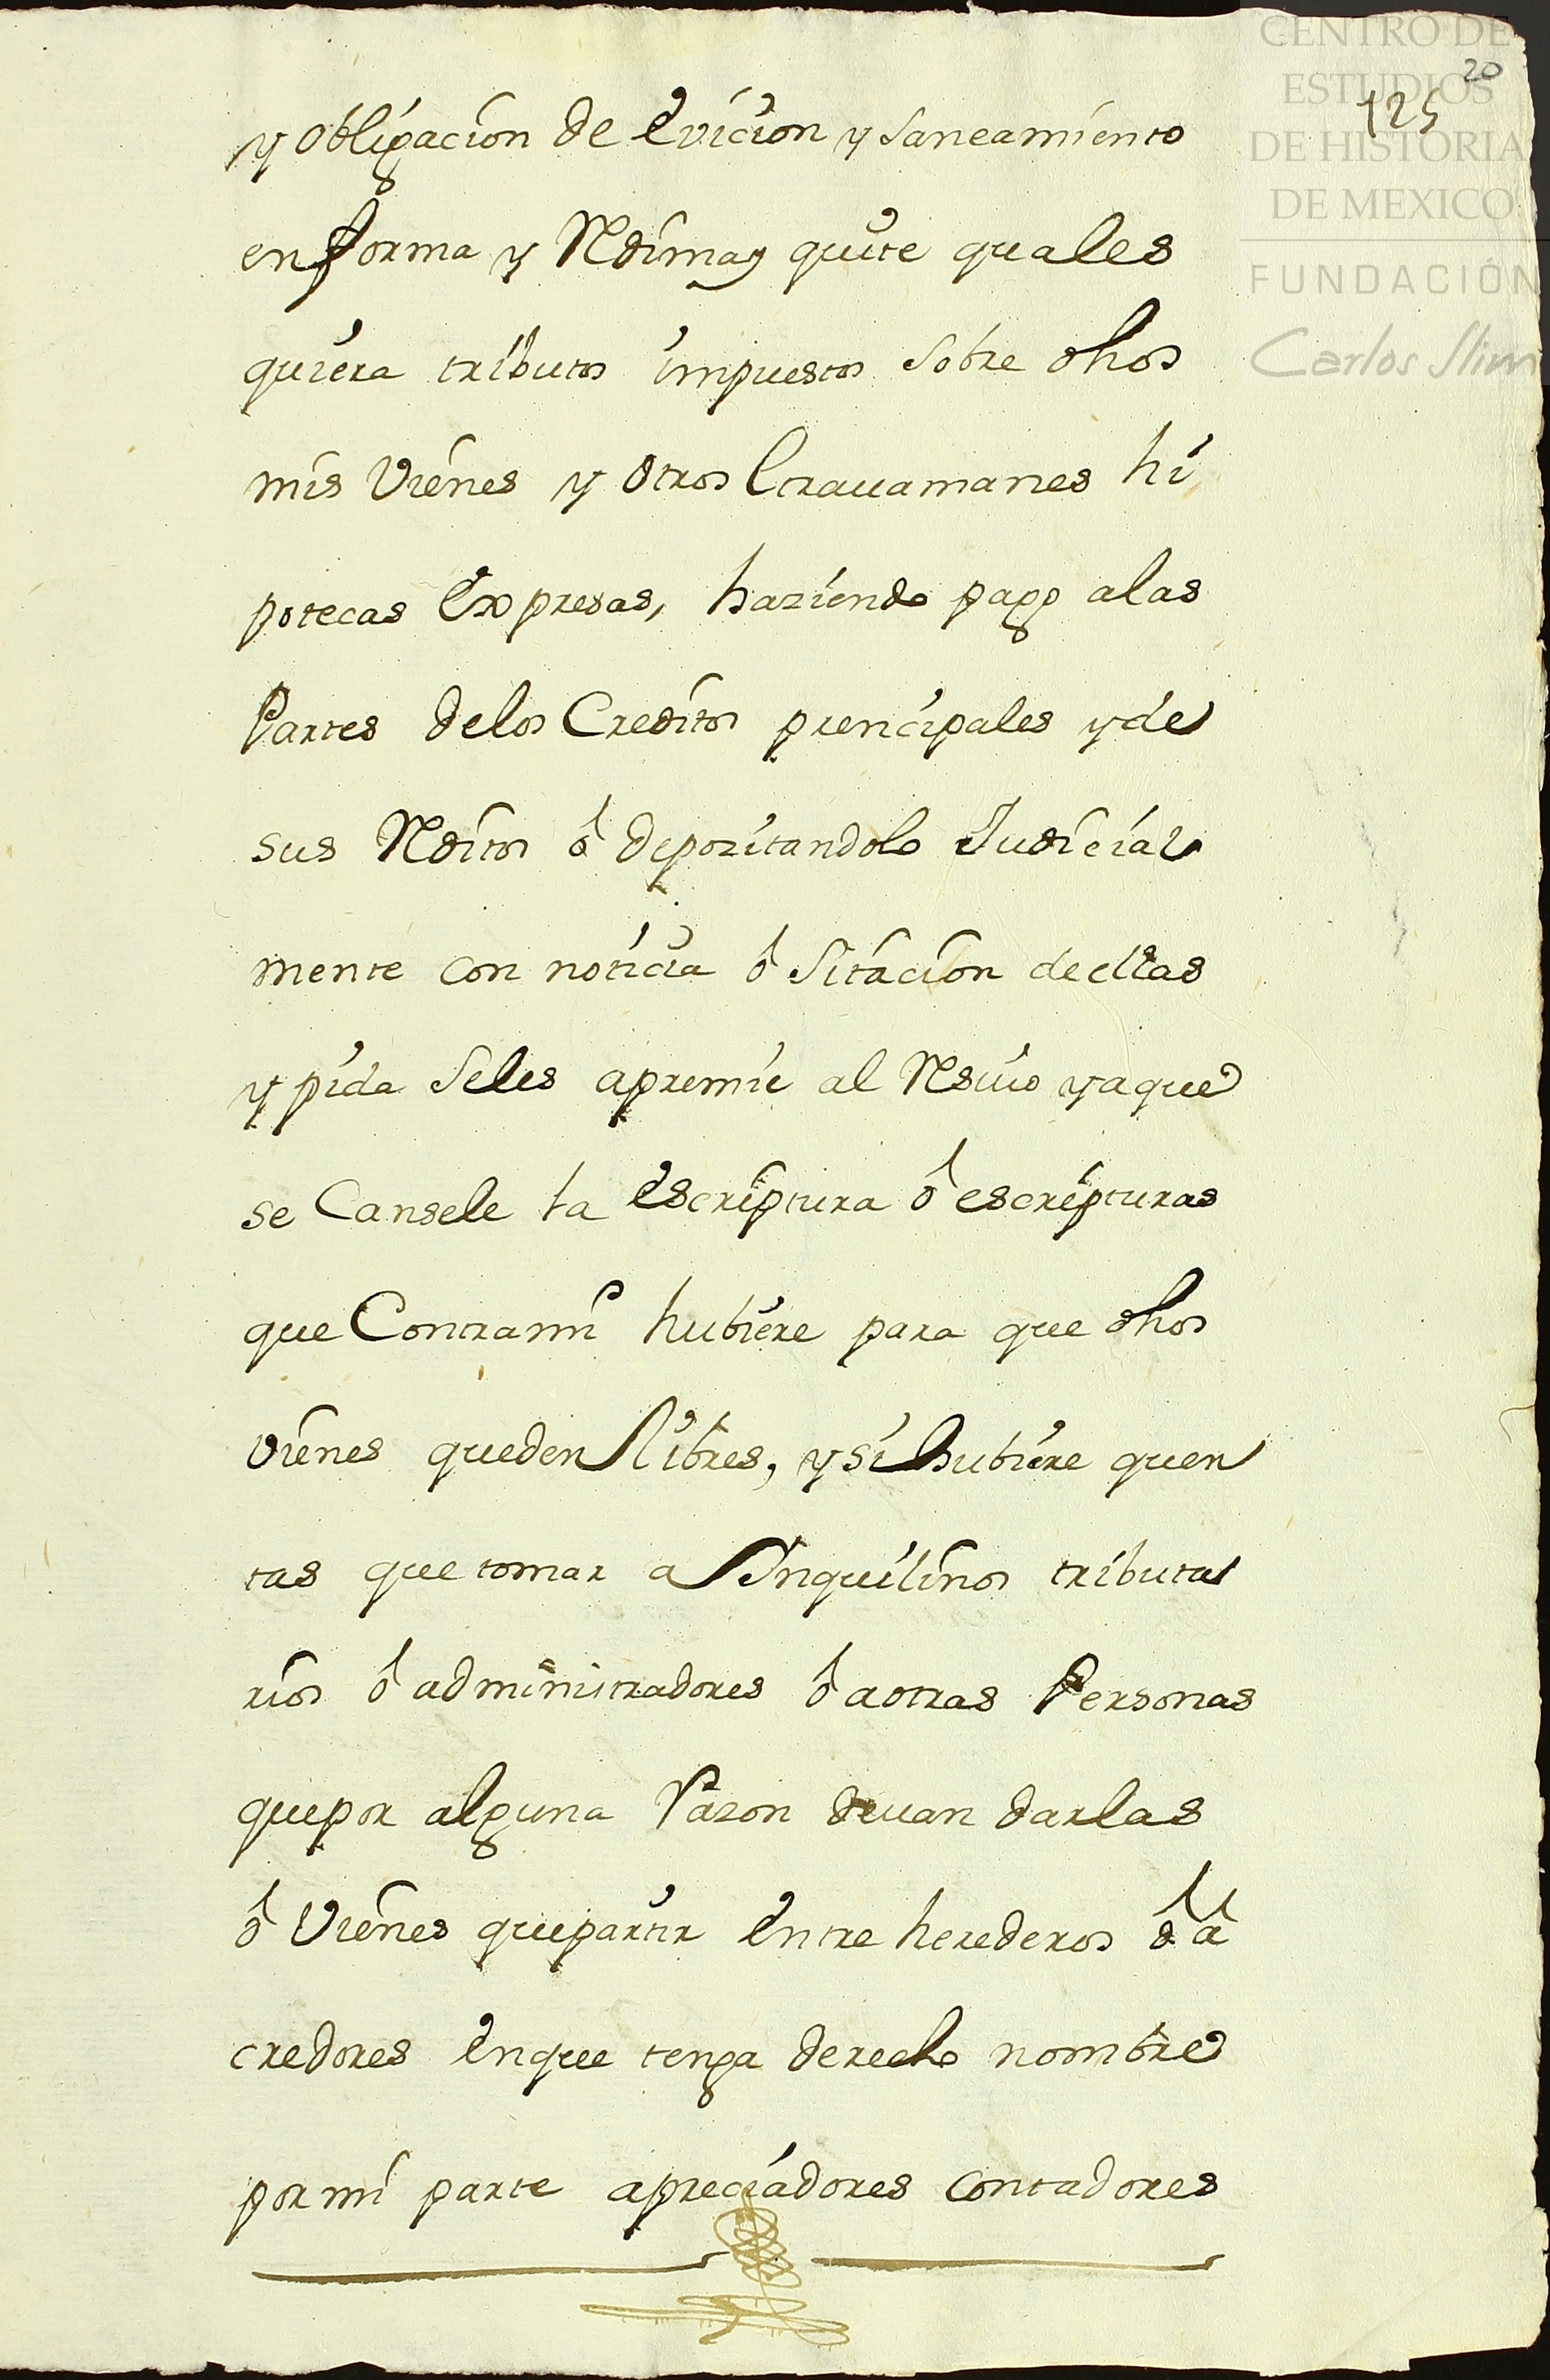 CENTRO DE
ESTUDIOS
DE HISTORIA
DE MEXICO
FUNDACIÓN
Carlos Slim
20
125
y obligacion de Evicion y saneamiento
en forma y Rdima y quite quales
quiera tributos impuestos sobre dhos
mis Vienes y otros Gravamanes hi
potecas Expresas, haziendo pago alas
Partes delos Creditos prencipales y de
sus Rditos ó depozitandolo Judicial
mente con noticia ó Sitacion de ellas
y pida Seles apremie al Rsiuo y aque
se Cansele la Escriptura ó escripturas
que Contra mi hubiere para que dhos
vienes queden libres, y si hubiere quen
tas que tomar a Inquilinos tributa
rios ó administradores ó a otras Personas
que por alguna Razon deuan darlas
ó Vienes que partir Entre herederos ó á
credores En que tenga derecho nombre
por mi parte apreciadores contadores